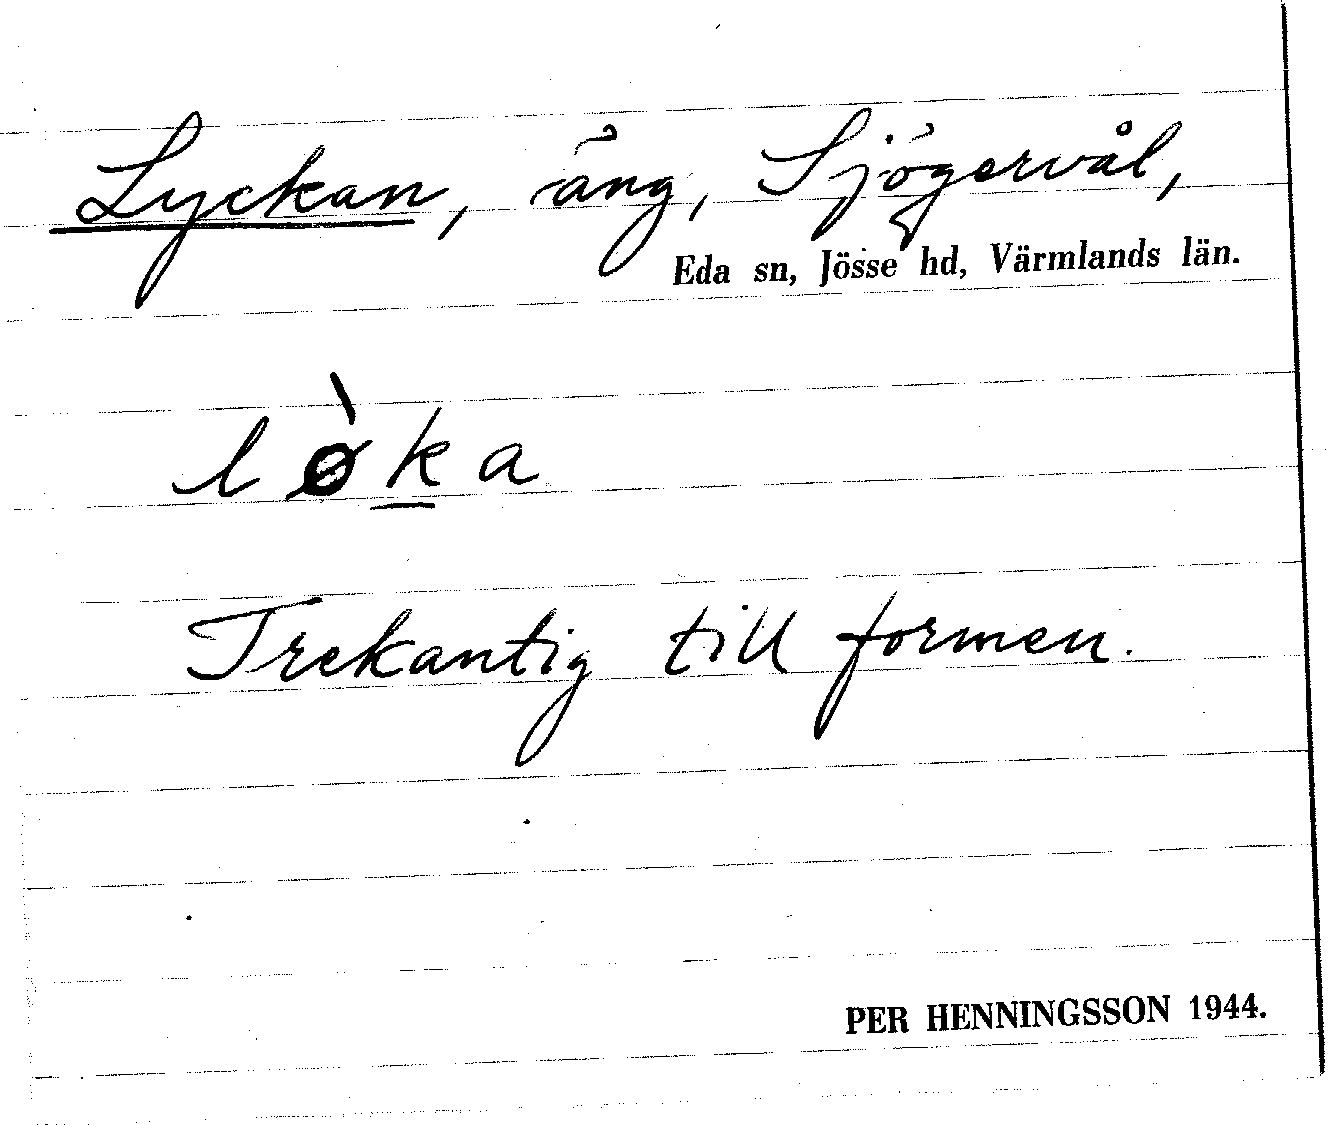 Lyckan, äng, Sjögervål,
Eda sn, Jösse hd, Värmlands län.
lø̀ḵa
Trekantig till formen.
PER HENNINGSSON 1944.